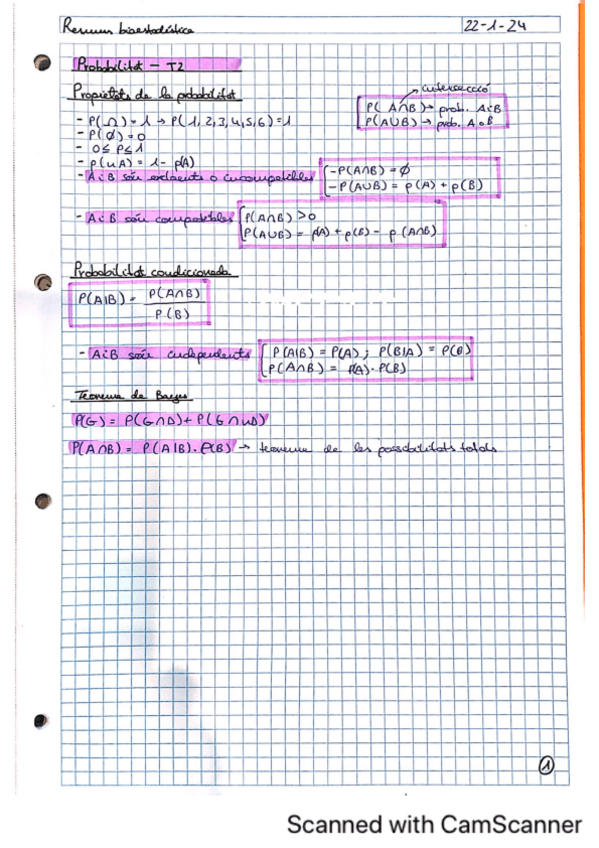 Resum bioestadística 22-1-24
Probabilitat - T2
Propietats de la probabilitat
intersecció
P( A∩B) → prob. A i B
P(A∪B) → prob. A o B
- P(Ω) = 1 → P( 1, 2, 3, 4, 5, 6) = 1
- P( ∅) = 0
- 0 ≤ P ≤ 1
- p(uA) = 1 - p(A)
- A i B són excloents o incompatibles { -P(A∩B) = ∅
-P(A∪B) = p(A) + p(B)
- A i B són compatibles { P(A∩B) > 0
P(A∪B) = p(A) + p(B) - p (A∩B)
Probabilitat condicionada
P(A|B) = P(A∩B) / P(B)
- A i B són independents { P(A|B) = P(A) ; P(B|A) = P(B)
P(A∩B) = P(A) · P(B)
Teorema de Bayes
P(G) = P(G∩D) + P(G∩uD)
P(A∩B) = P(A|B) · P(B) → teorema de les possibilitats totals
1
Scanned with CamScanner